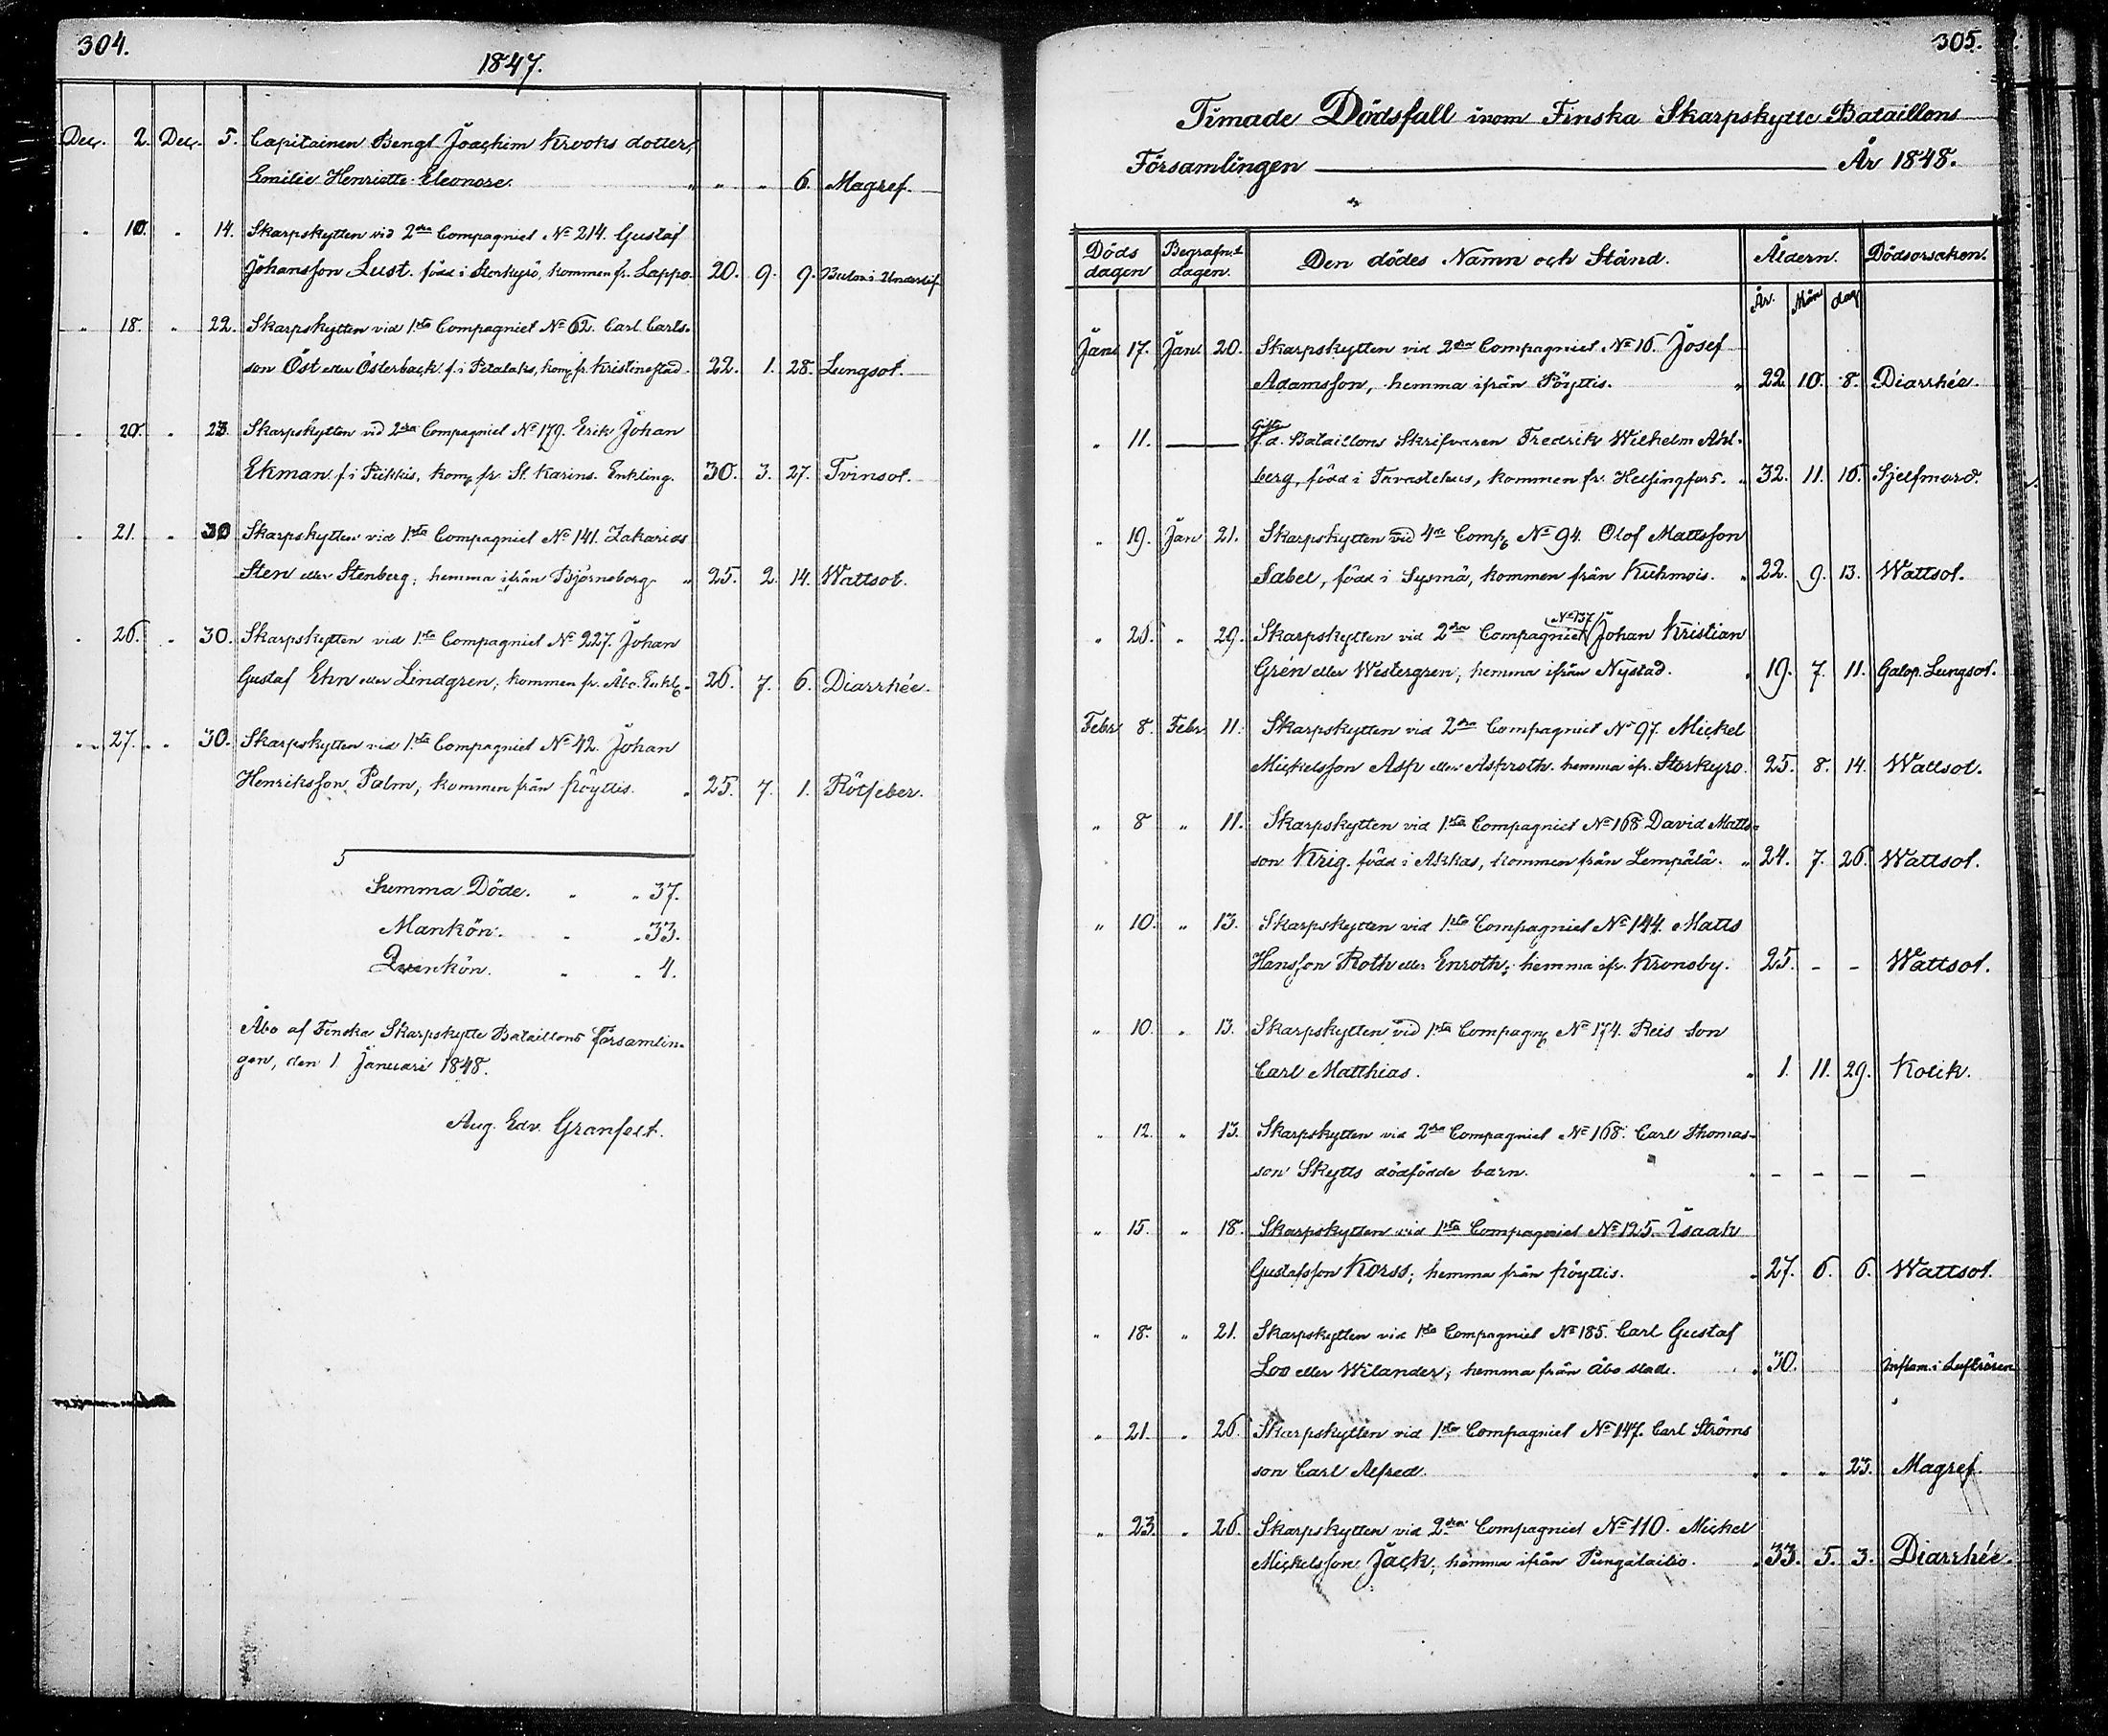 304.
1847.
Dec. 2. Dec. 5. Capitainen Bengt Joachim Krooks dotter,
Emilie Henriette Eleonore. " " " 6. Magref.
" 10. " 14. Skarpskytten vid 2dra Compagniet No 214. Gustaf
Johansson Lust. född i Storkyrö, kommen fr. Lappo. 20. 9. 9. i Underlif
" 18. " 22. Skarpskytten vid 1sta Compagniet No 62. Carl Carls-
son Öst eller Österback. f. i Petalaks, kom. fr. Kristinestad. 22. 1. 28. Lungsot.
" 20. " 23. Skarpskytten vid 2dra Compagniet No 179. Erik Johan
Ekman. f. i Pikkis, kom. fr. St. Karins. Enkling. 30. 3. 27. Tvinsot.
" 21. " 30 Skarpskytten vid 1sta Compagniet No 141. Zakarias
Sten eller Stenberg; hemma ifrån Björneborg. " 25. 2. 14. Wattsot.
" 26. " 30. Skarpskytten vid 1sta Compagniet No 227. Johan
Gustaf Ehn eller Lindgren; kommen fr. Åbo. Enkl. 26. 7. 6. Diarrhée.
" 27. " 30. Skarpskytten vid 1sta Compagniet No 42. Johan
Henriksson Palm, kommen från Pöyttis. " 25. 7. 1. Rötfeber.
Summa Döde. " " 37.
Mankön. " " 33.
Qvinkön. " " 4.
Åbo af Finska Skarpskytte Bataillons Församlin-
gen, den 1 Januari 1848.
Aug. Edv. Granfelt.
305.
Timade Dödsfall inom Finska Skarpskytte Bataillons
Församlingen År 1848.
Döds dagen Begrafn.s dagen. Den dödes Namn och Stånd. Åldern. Dödsorsaken.
År. Mån dag
Jan. 17. Jan. 20. Skarpskytten vid 2dra Compagniet No 16. Josef
Adamsson, hemma ifrån Pöyttis. " 22. 10. 8. Diarrhée.
Gifte
" 11. — f.d. Bataillons Skrifvaren Fredrik Wilhelm Ahl-
berg, född i Tavastehus, kommen fr. Helsingfors. " 32. 11. 16. Sjelfmord.
" 19. Jan 21. Skarpskytten vid 4de Comp. No 94. Olof Mattsson
Sabel, född i Sysmä, kommen från Kuhmois. " 22. 9. 13. Wattsot.
" 26. " 29. Skarpskytten vid 2dra Compagniet No 137 Johan Kristian
Grén eller Westergren, hemma ifrån Nystad. " 19. 7. 11. Galop. Lungsot.
Febr. 8. Febr. 11. Skarpskytten vid 2dra Compagniet No 97. Mickel
Mickelsson Asp eller Asproth. hemma ifr. Storkyro. 25. 8. 14. Wattsot.
" 8 " 11. Skarpskytten vid 1sta Compagniet No 168 David Matts-
son Krig. född i Akkas, kommen från Lempälä. " 24. 7. 26. Wattsot.
" 10. " 13. Skarpskytten vid 1sta Compagniet No 144. Matts
Hansson Roth eller Enroth; hemma ifr. Kronoby. 25. - - Wattsot.
" 10. " 13. Skarpskytten vid 1sta Compagn. No 174. Reis son
Carl Matthias. " 1. 11. 29. Kolik.
" 12. " 13. Skarpskytten vid 2dra Compagniet No 168. Carl Thomas-
son Skytts dödfödde barn. " - - - -
" 15. " 18. Skarpskytten vid 1sta Compagniet No 125. Isaak
Gustafsson Korss; hemma från Pöyttis. " 27. 6. 6. Wattsot.
" 18. " 21. Skarpskytten vid 1sta Compagniet No 185. Carl Gustaf
Loo eller Wilander; hemma från Åbo stad. " 30. Inflam. i Luftrören
" 21. " 26. Skarpskytten vid 1sta Compagniet No 147. Carl Ströms
son Carl Alfred. " " " 23. Magref.
" 23. " 26. Skarpskytten vid 2dra Compagniet No 110. Mickel
Mickelsson Jäck; hemma ifrån Pungalaitio. " 33. 5. 3. Diarrhée.